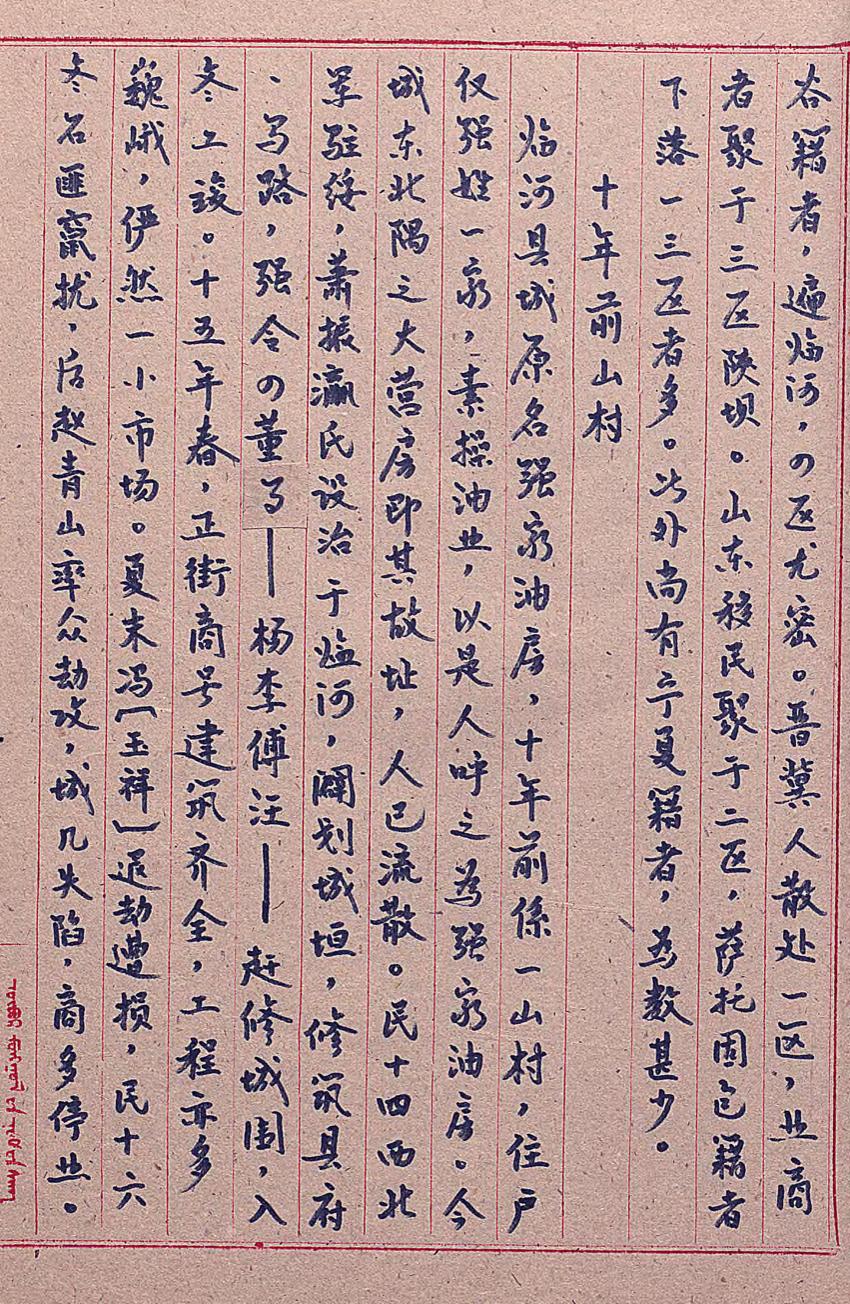 谷籍者，遍临河，の区尤密。晋冀人散处一区，业商
者聚于三区陕坝。山东移民聚于二区，萨托固包籍者
下落一三区者多。此外尚有宁夏籍者，为数甚少。
十年前山村
临河县城原名强家油房，十年前係一山村，住户
仅强姓一家，素操油业，以是人呼之為强家油房。今
城东北隅之大营房即其故址，人已流散。民十四西北
军驻绥，萧振瀛氏设治于临河，闢划城垣，修筑县府
、马路，强令の董马——杨李傅汪——赶修城围，入
冬工竣。十五年春，正街商号建筑齐全，工程亦多
巍峨，俨然一小市场。夏末冯〔玉祥〕退劫遭损，民十六
冬石匪窜扰，后赵青山率众劫攻，城几失陷，商多停业。